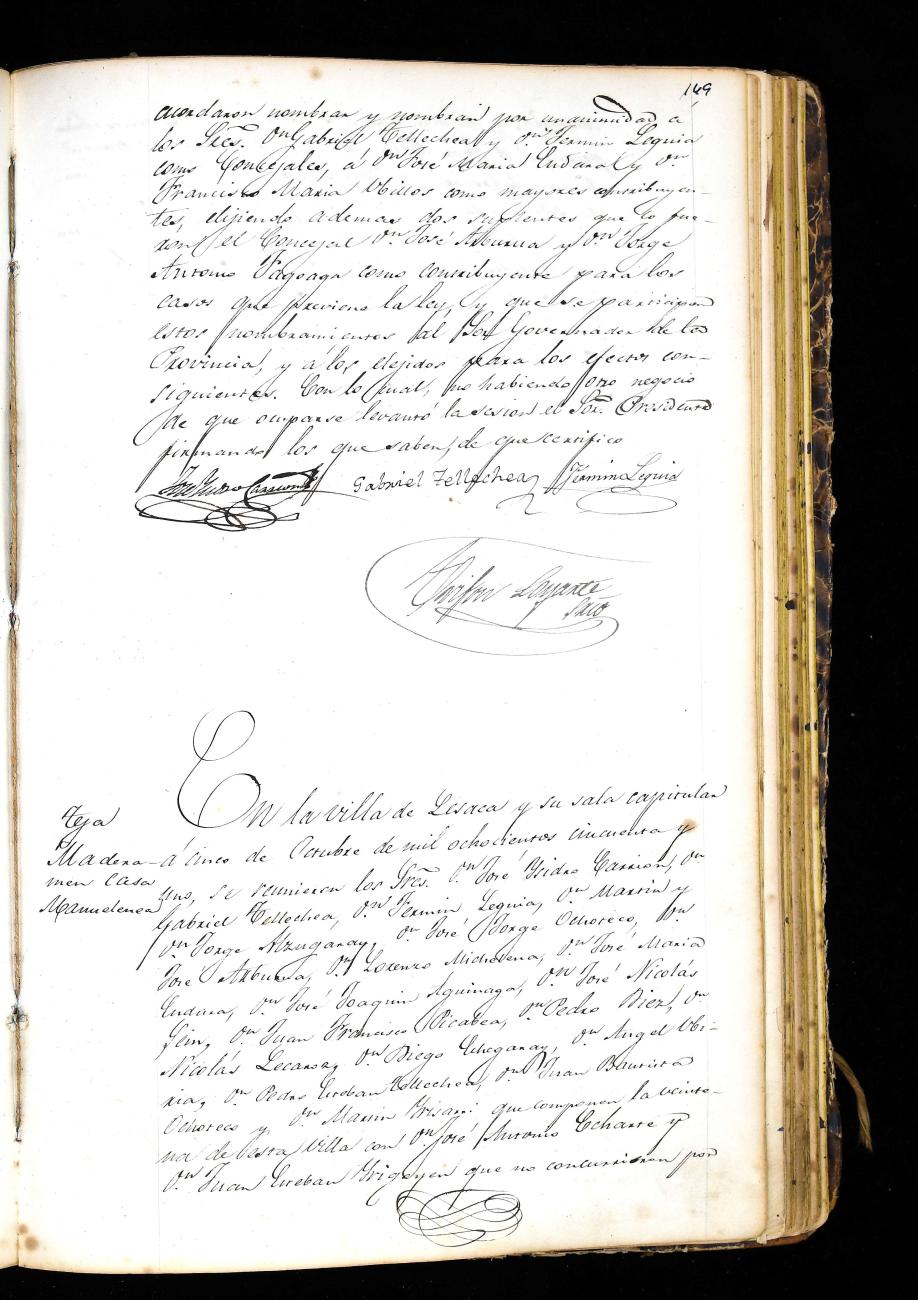 149
acordaron nombrar y nombran por unanimidad á
los Sres. Dn Gabriel Tellechea y Dn Fermin Leguia
como Concejales, á Dn José Maria Endara y Dn
Francisco Maria Ubillos como mayores contribuyen-
tes, elijiendo ademas dos suplentes que lo fue-
ron el Concejal Dn José Arburua y Dn Jorge
Antonio Fagoaga como contribuyente para los
casos que previene la ley, y que se participen
estos nombramientos al Sor Governador de la
Provincia, y á los elejidos para los efectos con-
siguientes. Con lo cual, no habiendo otro negocio
de que ocuparse levantó la sesion el Sor. Presidente
firmando los que saben, de que certifico
José Ysidro Carrion Gabriel Tellechea Fermin Leguia
Layarte
Srio
Teja
Madera-
men casa
Manuelenea
En la villa de Lesaca y su sala capitular
á cinco de Octubre de mil ochocientos cincuenta y
uno, se reunieron los Sres. Dn José Ysidro Carrion, Dn
Gabriel Tellechea, Dn Fermin Leguia, Dn Martin y
Dn Jorge Alzugaray, Dn José Jorge Ochoteco, Dn
José Arburua, Dn Lorenzo Michelena, Dn José Maria
Endara, Dn José Joaquin Aguinaga, Dn José Nicolás
Dn Juan Francisco Picabea, Dn Pedro Diez, Dn
Nicolás Lecaroz, Dn Diego Echegaray, Dn Angel Ubi-
ria, Dn Pedro Esteban Tellechea, Dn Juan Bautista
Ochoteco y Dn Martin Yrisarri que componen la veinte-
na de esta villa con Dn José Antonio Echarte y
Dn Juan Esteban Yrigoyen que no concurrieron por